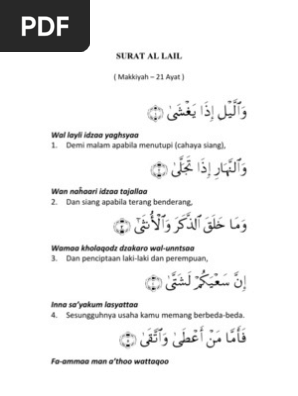 PDF
SURAT AL LAIL
( Makkiyah – 21 Ayat )
وَٱلَّيْلِ إِذَا يَغْشَىٰ ۝
Wal layli idzaa yaghsyaa
1. Demi malam apabila menutupi (cahaya siang),
وَٱلنَّهَارِ إِذَا تَجَلَّىٰ ۝
Wan naĥaari idzaa tajallaa
2. Dan siang apabila terang benderang,
وَمَا خَلَقَ ٱلذَّكَرَ وَٱلْأُنثَىٰٓ ۝
Wamaa kholaqodz dzakaro wal-unntsaa
3. Dan penciptaan laki-laki dan perempuan,
إِنَّ سَعْيَكُمْ لَشَتَّىٰ ۝
Inna sa’yakum lasyattaa
4. Sesungguhnya usaha kamu memang berbeda-beda.
فَأَمَّا مَنْ أَعْطَىٰ وَٱتَّقَىٰ ۝
Fa-ammaa man a’thoo wattaqoo